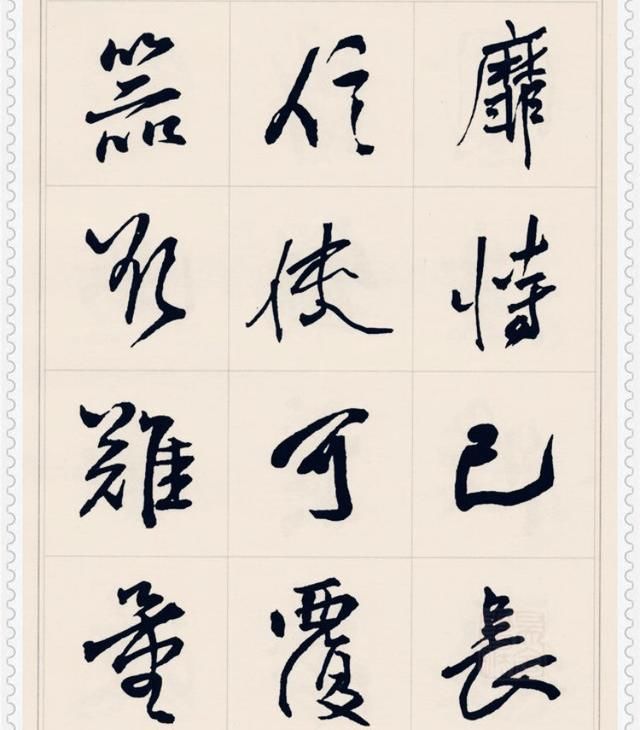 靡恃己長
信使可覆
器欲難量